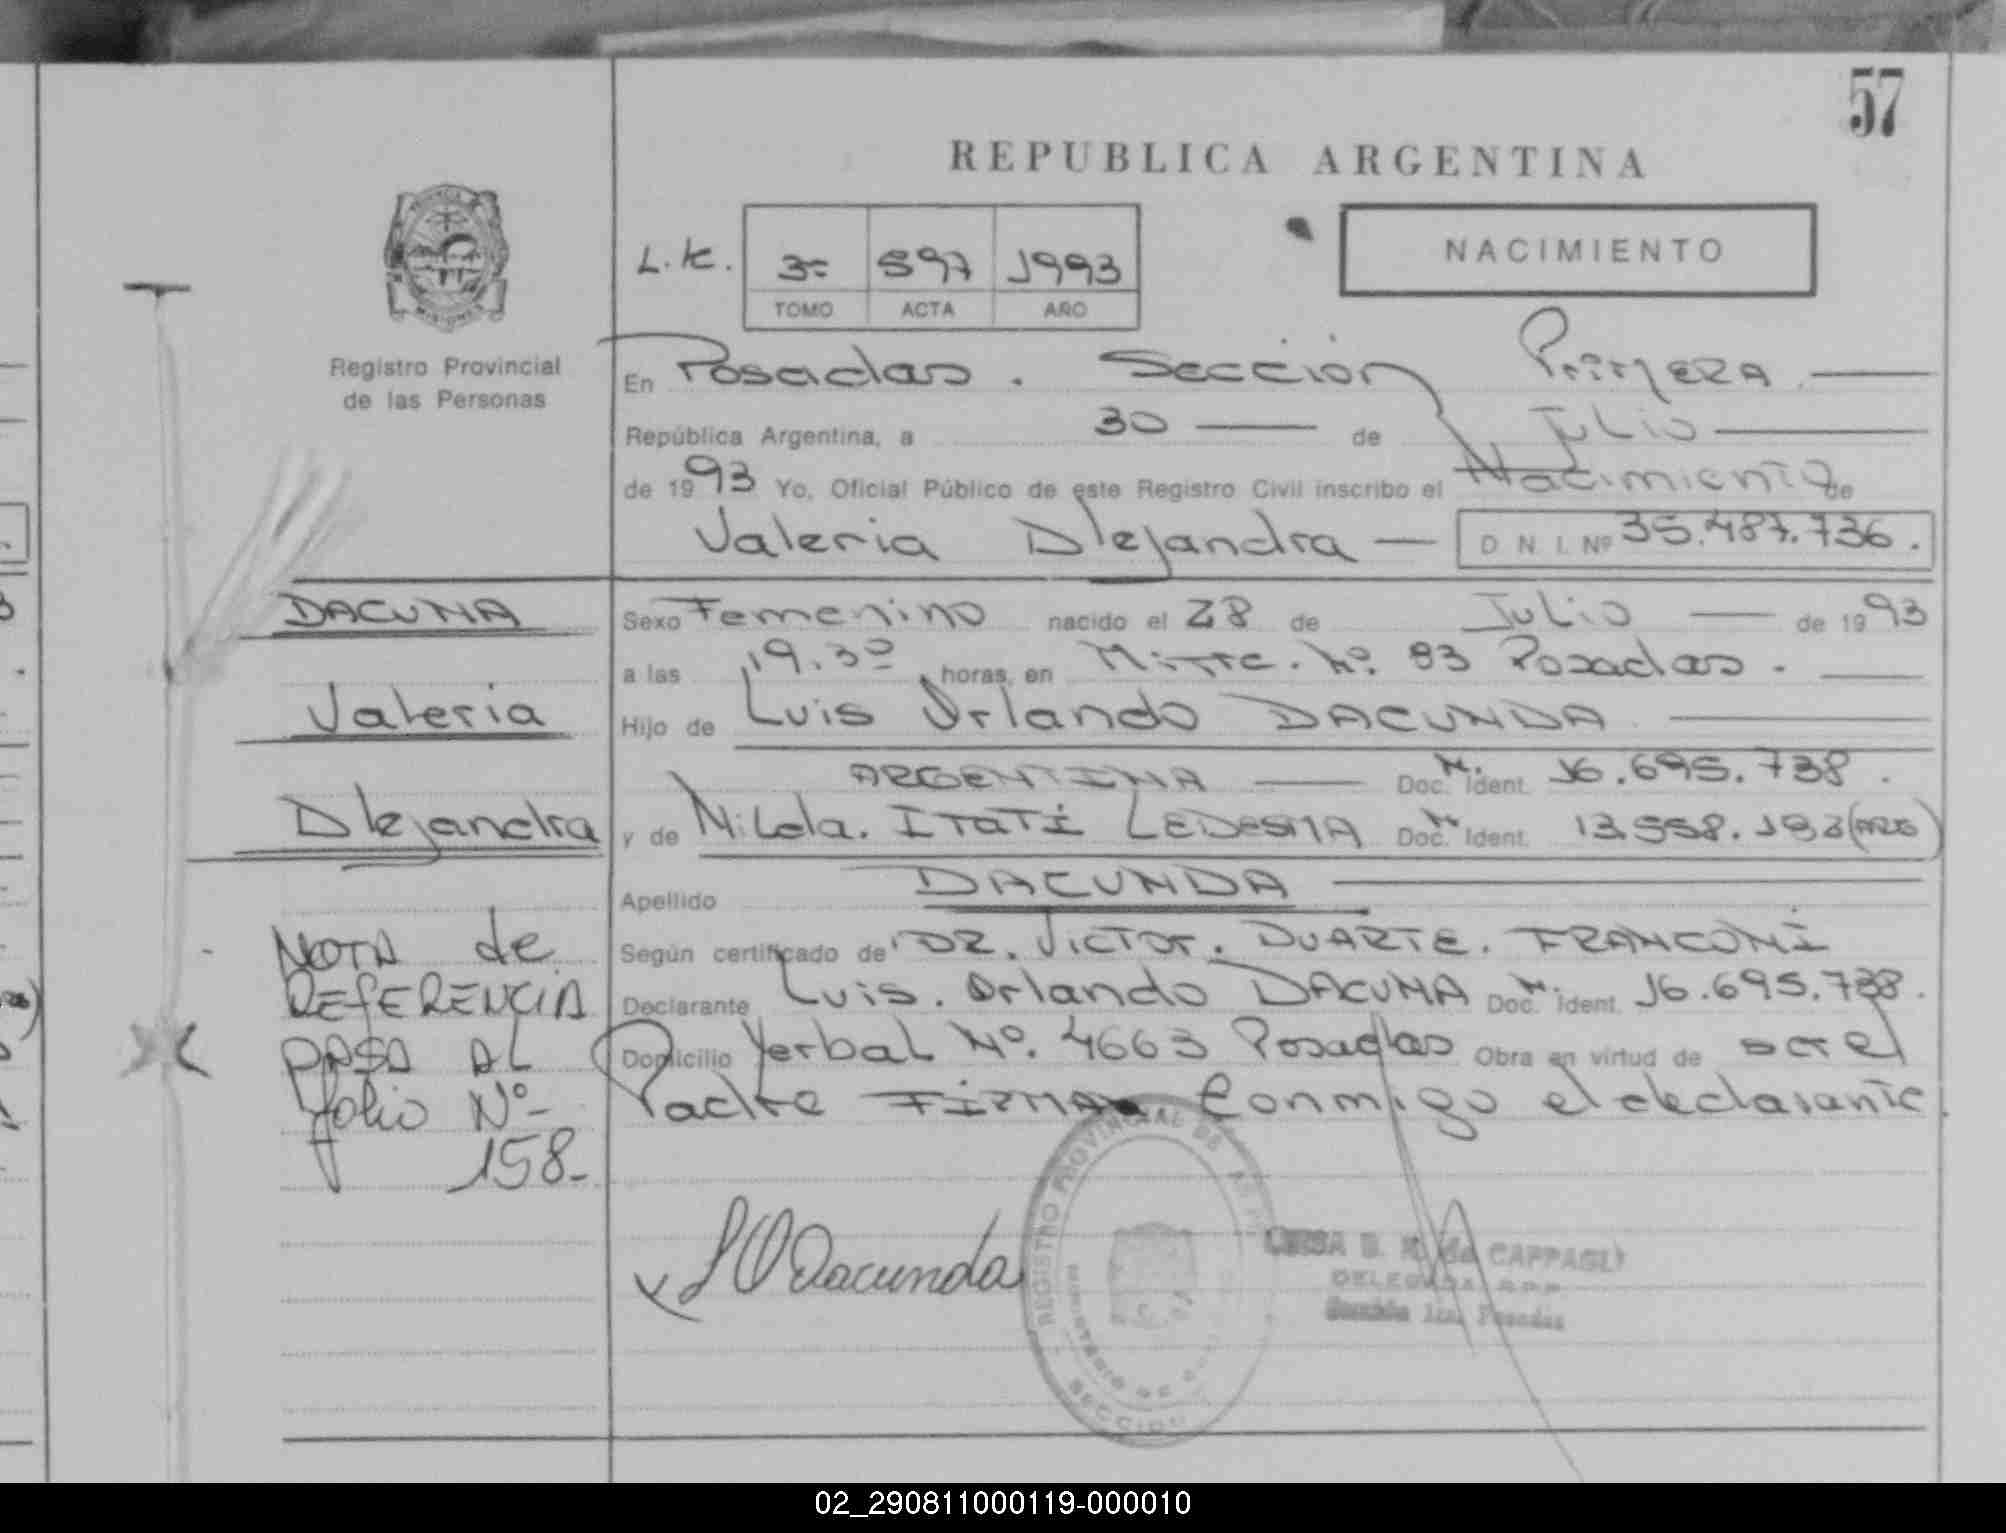 57
REPUBLICA ARGENTINA
L.K. 3= 597 1993
TOMO ACTA AÑO
NACIMIENTO
MISIONES
Registro Provincial
de las Personas
En Posadas. Sección Primera
República Argentina, a 30 de Julio
de 1993 Yo, Oficial Público de este Registro Civil inscribo el Nacimiento de
Valeria Alejandra D N I. Nº 35.487.736.
DACUNA
Valeria
Alejandra
Sexo Femenino nacido el 28 de Julio de 1993
a las 19.30 horas, en Mitre. Nº. 83 Posadas.
Hijo de Luis Orlando DACUNDA
ARGENTINA Doc. N. Ident. 16.695.738.
y de Nilda. ITATÍ LEDESMA Doc. N. Ident. 13.558.193 (ARG)
Apellido DACUNDA
Según certificado de DR. VICTOR. DUARTE. FRANCONÍ
Declarante Luis. Orlando DACUNA Doc. N. Ident. 16.695.738.
Domicilio Yerbal Nº. 4663 Posadas Obra en virtud de ser el
Padre FIRMA Conmigo el declarante.
NOTA de
REFERENCIA
PASA AL
folio Nº-
158-
L O Dacunda
REGISTRO PROVINCIAL DE
SECCION
D. de CAPPAGLI
DELEGADA R.P.P
Sección 1ra. Posadas
02_290811000119-000010